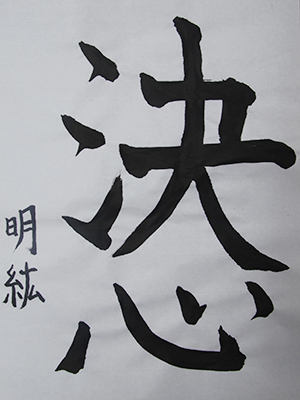 決心
明紘